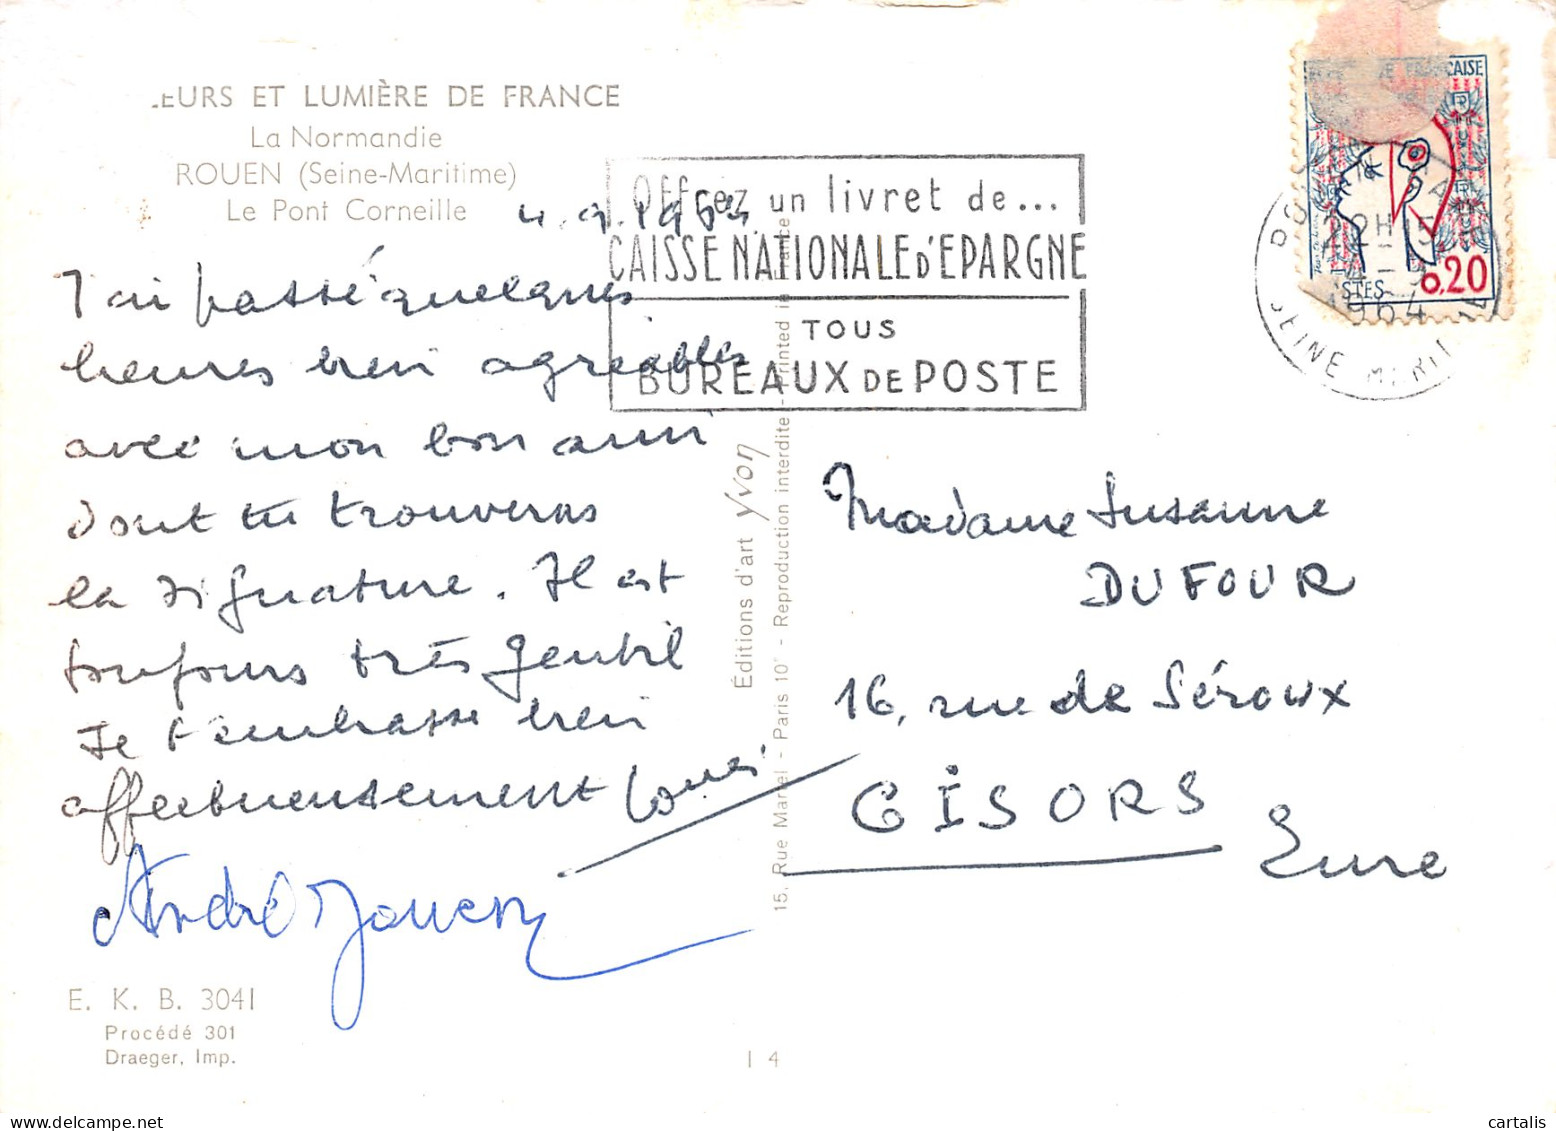 EURS ET LUMIÈRE DE FRANCE
La Normandie
ROUEN (Seine-Maritime)
Le Pont Corneille
4.9.1964
J'ai passé quelques
heures bien agréables
avec mon bon ami
dont tu trouveras
la signature. Il est
toujours très gentil
Je t'embrasse bien
affectueusement Louis
André
E. K. B. 3041
Procédé 301
Draeger, Imp.
Éditions d'art Yvon
15, Rue Martel - Paris 10e - Reproduction interdite - Printed in France
I 4
Offrez un livret de...
CAISSE NATIONALE D'EPARGNE
TOUS
BUREAUX DE POSTE
ÇAISE
22H15
4-9
1964
SEINE MARIT
STES 0,20
Madame Susanne
DUFOUR
16, rue de Séroux
GISORS
Eure
cartalis